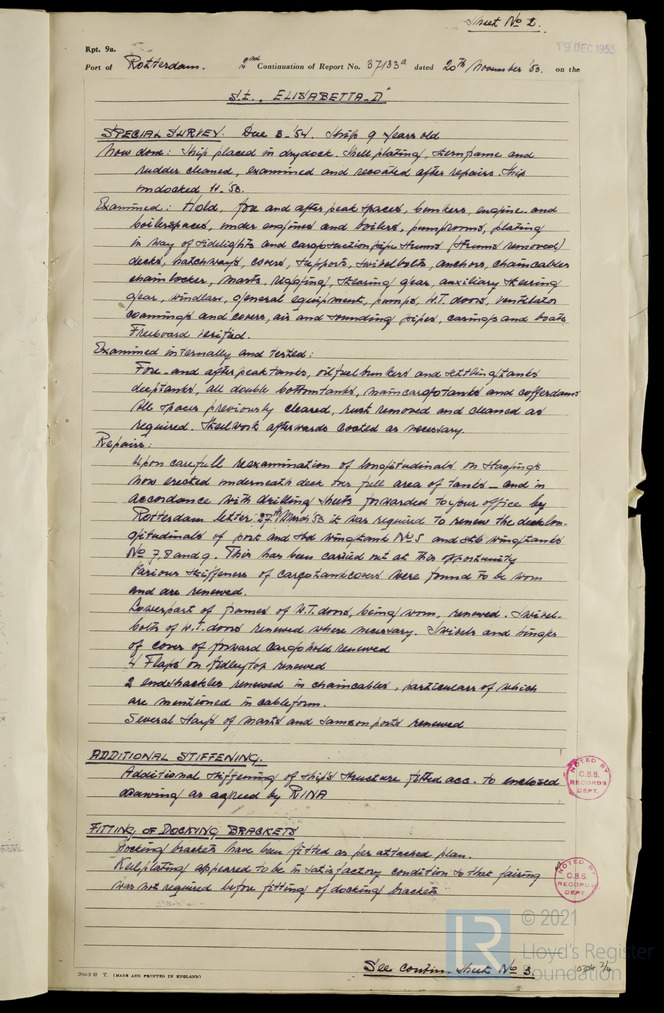 Sheet No 2.
Rpt. 9a.
19 DEC 1953
Port of Rotterdam. 2nd Continuation of Report No. 37133a dated 20th November '53. on the
S.S. "ELISABETTA-D"
SPECIAL SURVEY. Due 3-'54. Ship 9 years old
Now done: Ship placed in drydock. Shellplating, sternframe and
rudder cleaned, examined and recoated after repairs. Ship
undocked 11-53.
Examined: Hold, fore and after peak spaces, bunkers, engine- and
boilerspaces, under engines and boilers, pumprooms, plating
in way of sidelights and cargosuctionpipe strums (strums removed)
decks, hatchways, covers, supports, swivelbolts, anchors, chaincables
chainlocker, masts, rigging, steering gear, auxiliary steering
gear, windlass, general equipment, pumps, W.T. doors, ventilator
coamings and covers, air and sounding pipes, casings and boats.
Freeboard verified.
Examined internally and tested:
Fore- and after peaktanks, oilfuelbunkers and settlingtanks
deeptanks, all double bottomtanks, maincargotanks and cofferdams
All spaces previously cleared, rust removed and cleaned as
required. Steelwork afterwards coated as necessary.
Repairs:
Upon carefull reexamination of longitudinals on stagings
now erected underneath deck over full area of tanks - and in
accordance with drilling sheets forwarded to your office by
Rotterdam letter 27th March '53 it was required to renew the decklon-
gitudinals of port and stbd wingtank No 5 and stb wingtanks
No 7, 8 and 9. This has been carried out at this opportunity
Various stiffeners of cargotankcovers were found to be worn
and are renewed.
Lowerpart of frames of W.T. doors, being worn, renewed. Swivel-
bolts of W.T. doors renewed where necessary. Swivels and hinges
of cover of forward cargohold renewed
4 Flaps on fidleytop renewed
2 endshackles renewed in chaincables, particulars of which
are mentioned in cableform.
Several stays of masts and samsonposts renewed
ADDITIONAL STIFFENING.
Additional stiffening of ship's structure fitted acc. to enclosed
drawing as agreed by RINA
NOTED BY
C.S.S.
RECORDS
DEPT.
FITTING OF DOCKING BRACKETS
Docking brackets have been fitted as per attached plan.
Keelplating appeared to be in satisfactory condition so that fairing
was not required before fitting of docking brackets
NOTED BY
C.S.S.
RECORDS
DEPT.
LR © 2021
Lloyd's Register
Foundation
See contin. sheet No 3.
T. (MADE AND PRINTED IN ENGLAND)